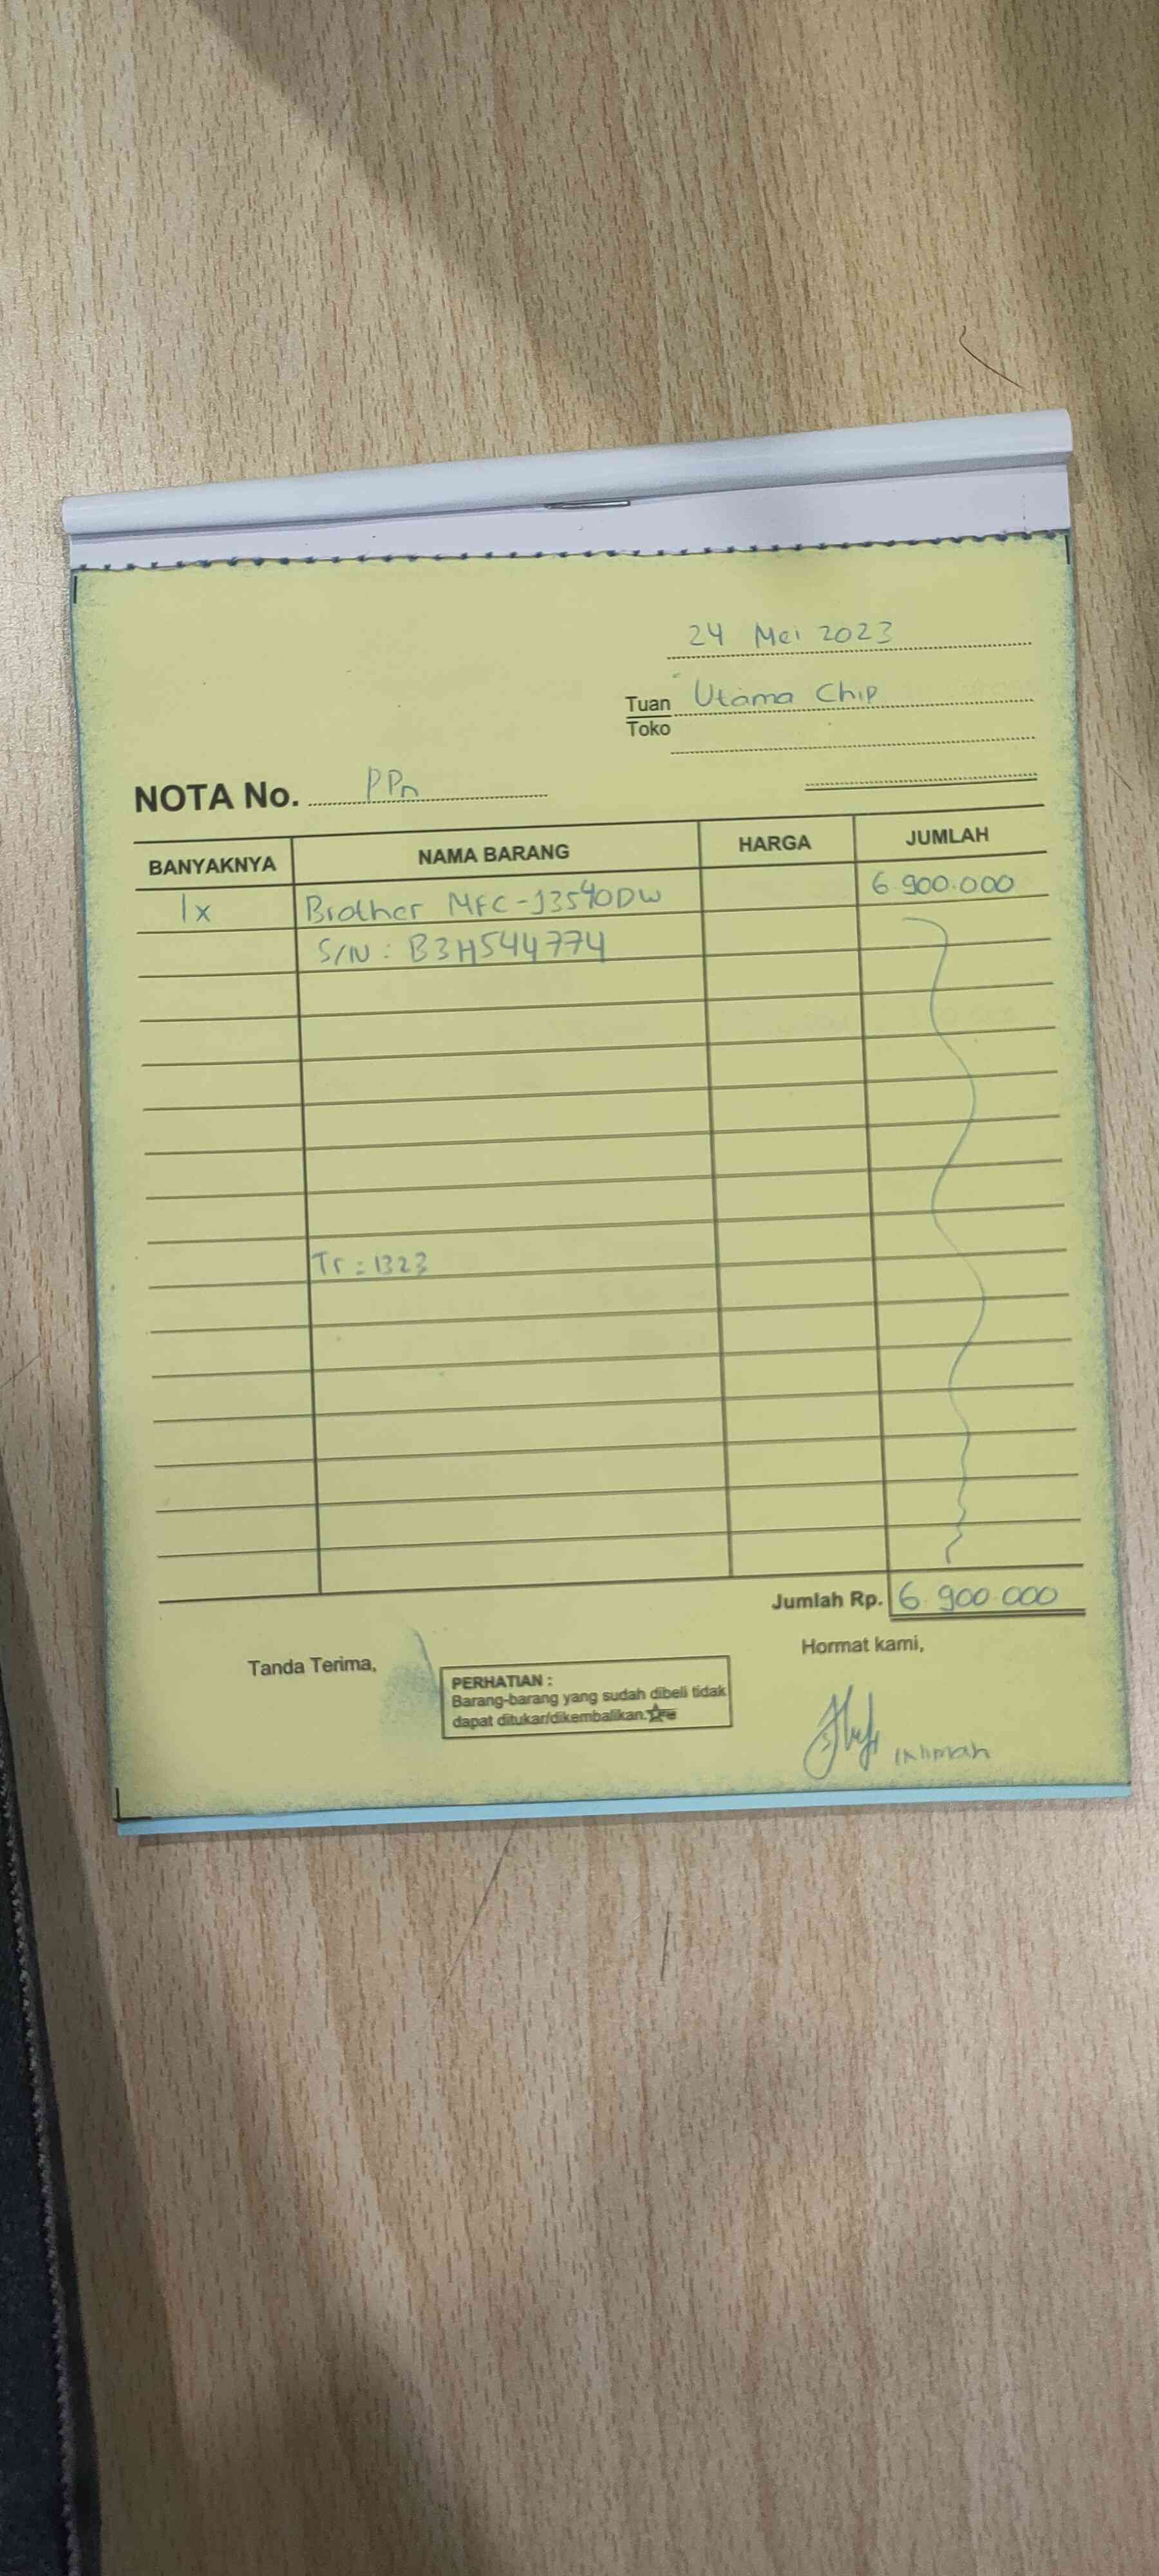 24 Mei 2023
Tuan Utama Chip
Toko
NOTA No. PPn
BANYAKNYA NAMA BARANG HARGA JUMLAH
1x Brother MFC-J3540DW 6.900.000
S/N : B3H544774
Tr : 1323
Jumlah Rp. 6.900.000
Tanda Terima,
Hormat kami,
PERHATIAN :
Barang-barang yang sudah dibeli tidak
dapat ditukar/dikembalikan.